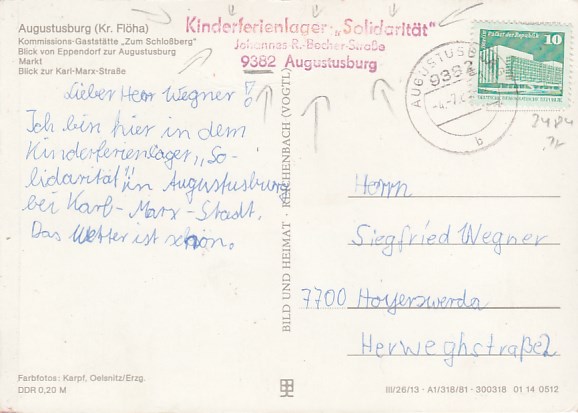 Augustusburg (Kr. Flöha)
Kommissions-Gaststätte „Zum Schloßberg“
Blick von Eppendorf zur Augustusburg
Markt
Blick zur Karl-Marx-Straße
Kinderferienlager „Solidarität“
Johannes-R.-Becher-Straße
9382 Augustusburg
10
AUGUSTUSBURG
9382
b
Lieber Herr Wegner!
Ich bin hier in dem
Kinderferienlager „So-
lidarität" in Augustusburg
bei Karl-Marx-Stadt.
Das Wetter ist schön.
BILD UND HEIMAT · REICHENBACH (VOGTL)
Herrn
Siegfried Wegner
7700 Hoyerswerda
Herweghstraße 2
Farbfotos: Karpf, Oelsnitz/Erzg.
DDR 0,20 M
III/26/13 · A1/318/81 · 300318 01 14 0512